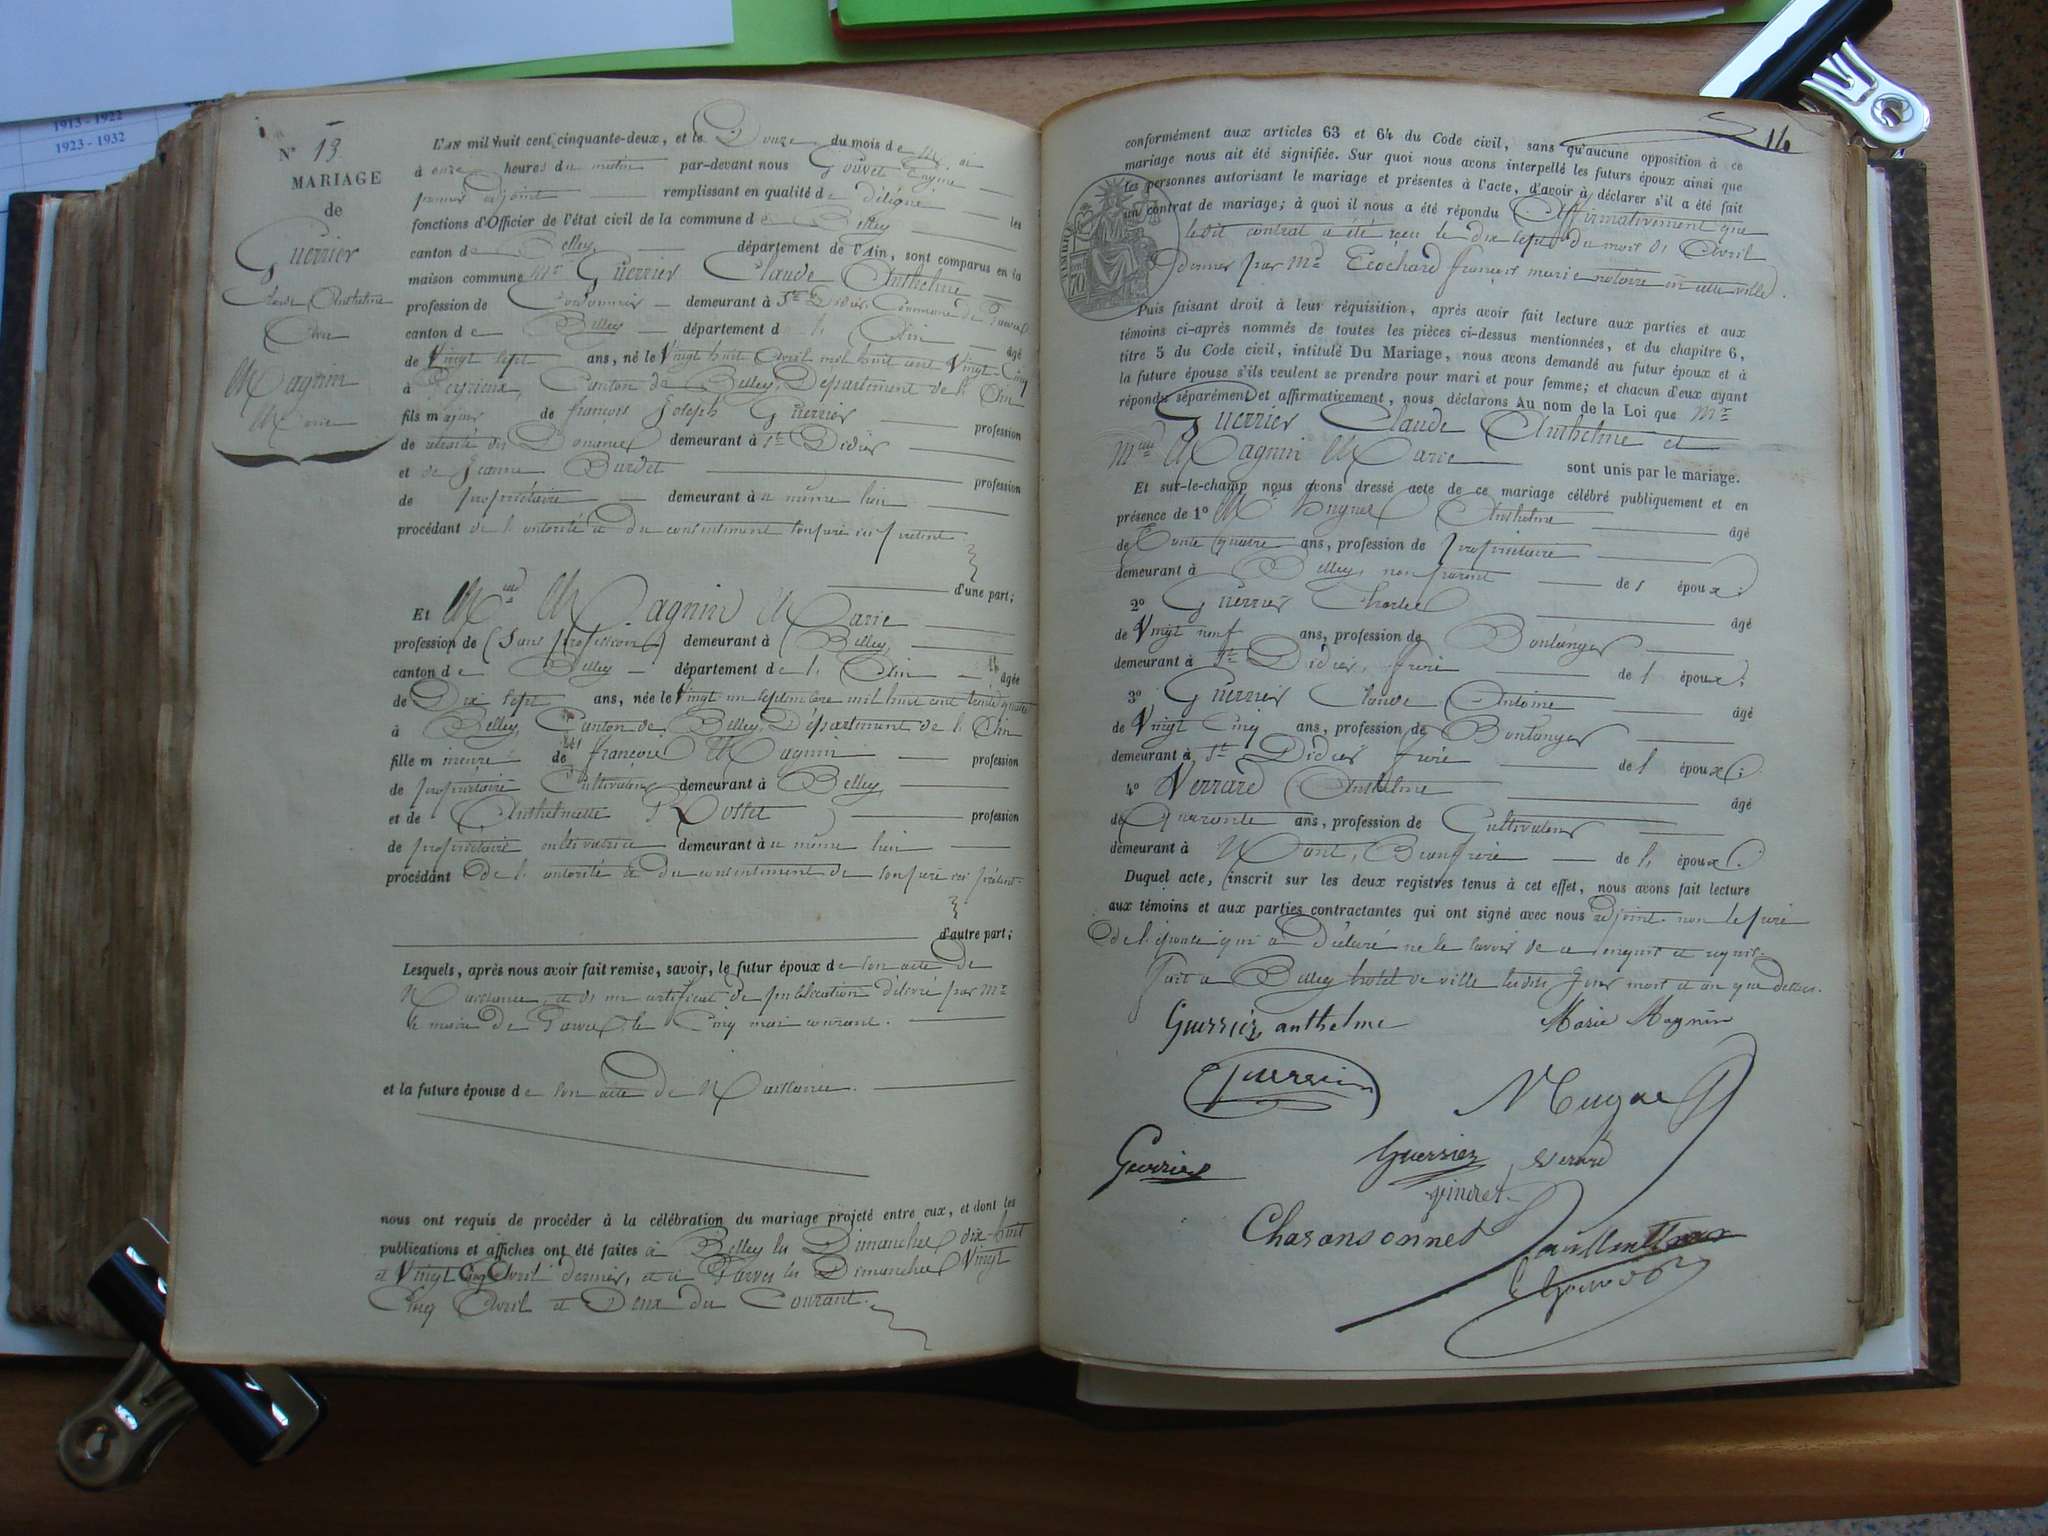 1913 - 1922
1923 - 1932
N° 13.
MARIAGE
de
Guerrier
Claude Anthelme
Avec
Magnin
Marie
L'AN mil huit cent cinquante-deux, et le Douze du mois de Mai
à onze heures du matin par-devant nous Gouvet
premier adjoint remplissant en qualité de délégué les
fonctions d'Officier de l'état civil de la commune de Belley
canton de Belley département de l'Ain, sont comparus en la
maison commune Mr Guerrier Claude Anthelme
profession de Cordonnier demeurant à St Didier, Commune de Parves
canton de Belley département de l'Ain âgé
de Vingt sept ans, né le Vingt huit Avril mil huit cent Vingt-Cinq
à Peyrieux, Canton de Belley, Département de l'Ain
fils majeur de françois Joseph Guerrier profession
de retraité des Douanes demeurant à St Didier
et de Jeanne Burdet profession
de propriétaire demeurant au même lieu
procédant de l'autorité et du consentement de son père ici présent.
d'une part;
Et Melle Magnin Marie
profession de (Sans profession) demeurant à Belley,
canton de Belley département de l'Ain âgée
de Dix sept ans, née le Vingt un septembre mil huit cent trente quatre
à Belley, Canton de Belley, Département de l'Ain
fille mineure de françois Magnin profession
de propriétaire Cultivateur demeurant à Belley,
et de Anthelmette Rostet profession
de propriétaire cultivatrice demeurant au même lieu
procédant de l'autorité et du consentement de son père ici présent.
d'autre part;
Lesquels, après nous avoir fait remise, savoir, le futur époux de son acte de
Naissance, et d'un certificat de publication délivré par Mr
le maire de Parves, le Cinq mai courant.
et la future épouse de son acte de Naissance.
nous ont requis de procéder à la célébration du mariage projeté entre eux, et dont les
publications et affiches ont été faites à Belley les Dimanches dix-huit
et Vingt Cinq Avril dernier, et à Parves les Dimanches Vingt
Cinq Avril et Deux du Courant.
14
conformément aux articles 63 et 64 du Code civil, sans qu'aucune opposition à ce
mariage nous ait été signifiée. Sur quoi nous avons interpellé les futurs époux ainsi que
les personnes autorisant le mariage et présentes à l'acte, d'avoir à déclarer s'il a été fait
un contrat de mariage; à quoi il nous a été répondu Affirmativement que
ledit contrat a été reçu le dix sept du mois d'Avril
dernier par Me Ecochard françois marie notaire en cette ville.
TIMBRE
70
Puis faisant droit à leur réquisition, après avoir fait lecture aux parties et aux
témoins ci-après nommés de toutes les pièces ci-dessus mentionnées, et du chapitre 6,
titre 5 du Code civil, intitulé Du Mariage, nous avons demandé au futur époux et à
la future épouse s'ils veulent se prendre pour mari et pour femme; et chacun d'eux ayant
répondu séparément et affirmativement, nous déclarons Au nom de la Loi que Mr
Guerrier Claude Anthelme et
Melle Magnin Marie sont unis par le mariage.
Et sur-le-champ nous avons dressé acte de ce mariage célébré publiquement et en
présence de 1° Mr Anthelme âgé
de Trente quatre ans, profession de propriétaire
demeurant à Belley, non parent de l'époux;
2° Guerrier Charles âgé
de Vingt neuf ans, profession de Boulanger
demeurant à St Didier, frère de l'époux;
3° Guerrier Claude Antoine âgé
de Vingt Cinq ans, profession de Boulanger
demeurant à St Didier frère de l'époux;
4° Verrard Anthelme âgé
de Quarante ans, profession de Cultivateur
demeurant à Beaufrère de l'époux.
Duquel acte, inscrit sur les deux registres tenus à cet effet, nous avons fait lecture
aux témoins et aux parties contractantes qui ont signé avec nous adjoint non le père
de l'épouse qui a déclaré ne le savoir de ce enquis et requis.
Fait à Belley hôtel de ville lesdits Jour mois et an que dessus.
Guerrier anthelme Marie Magnin
Guerrier
Guerrier Guerrier verard
Charansonnet